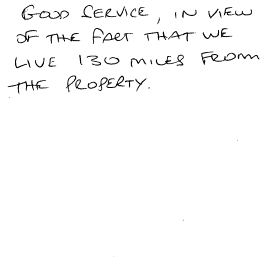 GOOD SERVICE, IN VIEW
OF THE FACT THAT WE
LIVE 130 MILES FROM
THE PROPERTY.